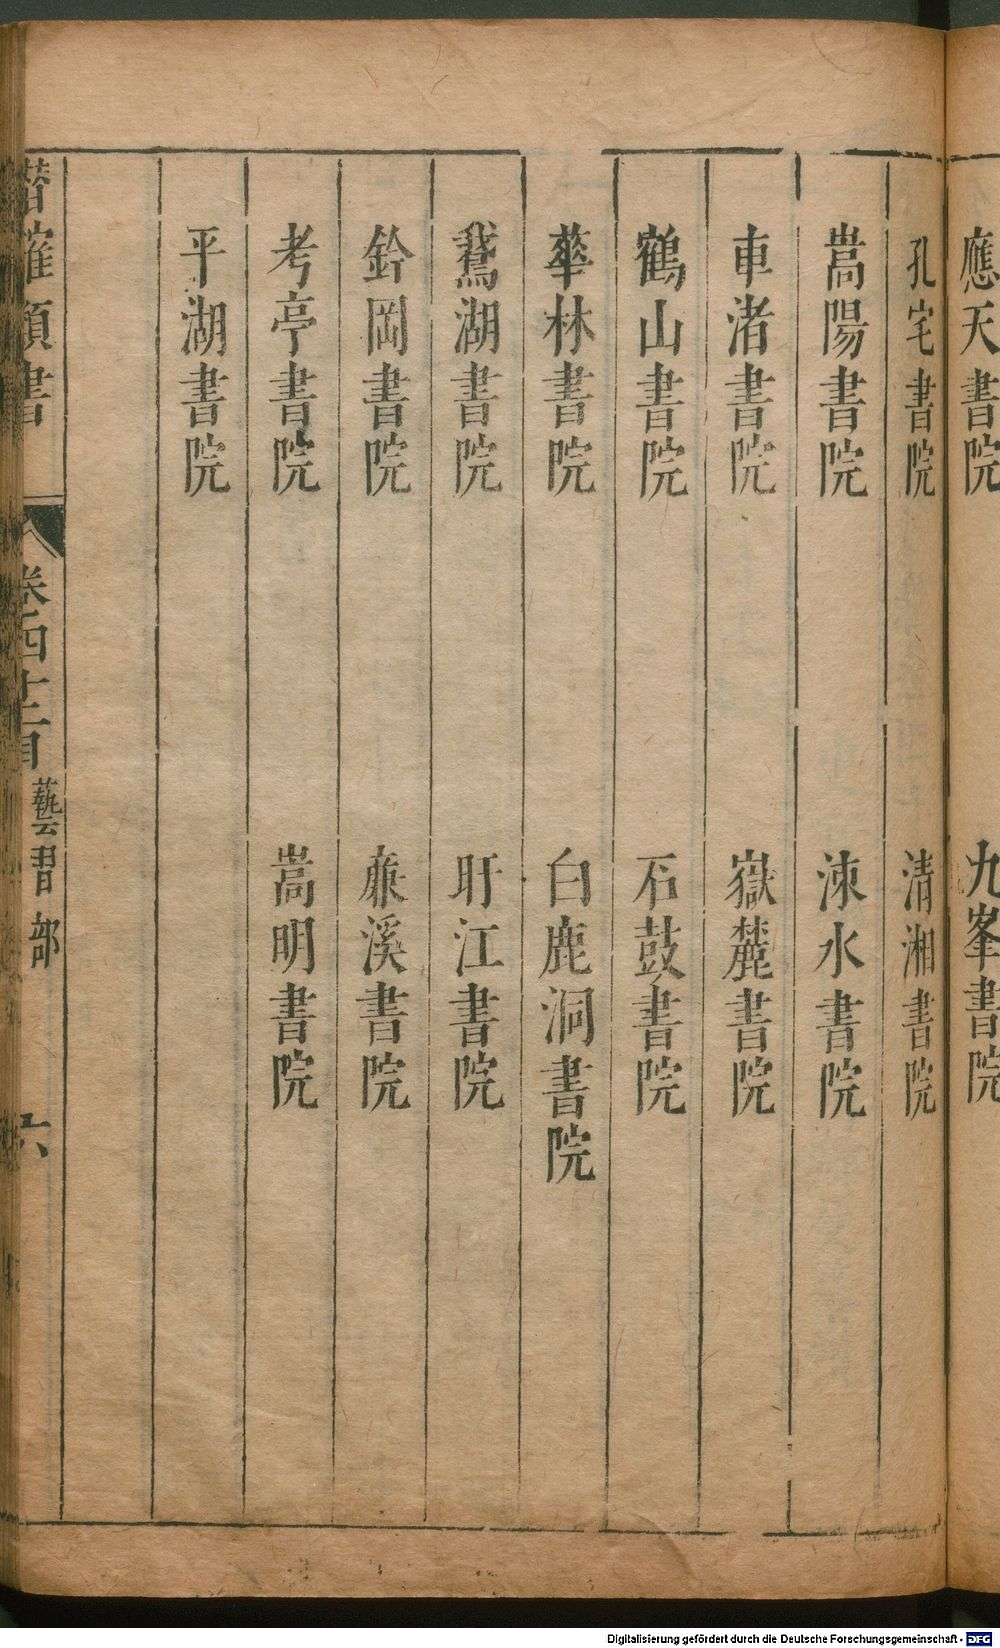 應天書院 九峯書院
孔宅書院 清湘書院
嵩陽書院 涑水書院
車渚書院 嶽麓書院
鶴山書院 石鼓書院
華林書院 白鹿洞書院
鵞湖書院 盱江書院
鈐岡書院 㾾溪書院
考亭書院 嵩明書院
平湖書院
潛確類書 卷四十二目 藝習部 六
Digitalisierung gefördert durch die Deutsche Forschungsgemeinschaft - DFG